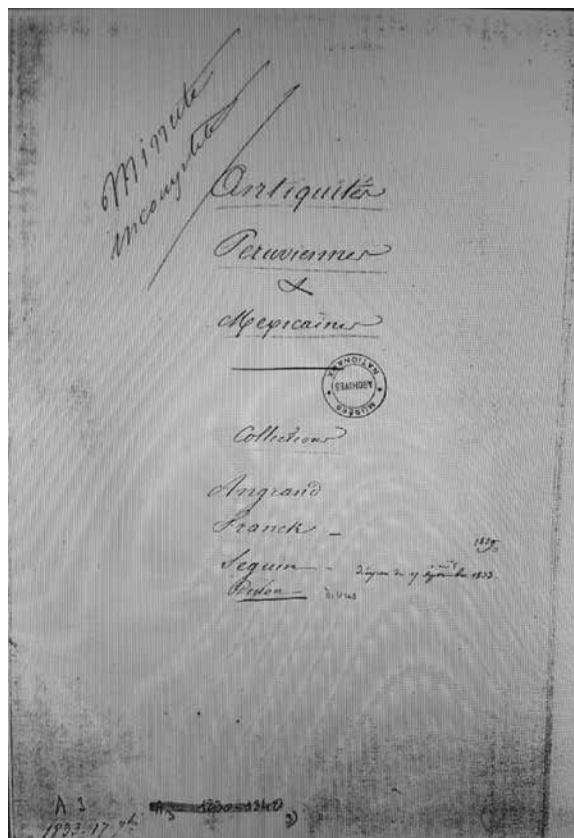 Minute
incomplète
Antiquités
Peruviennes
&
Mexicaines
MUSÉES NATIONAUX
ARCHIVES
Collections
Angrand
Franck —
Seguin —
divers
A 3
1833. 17